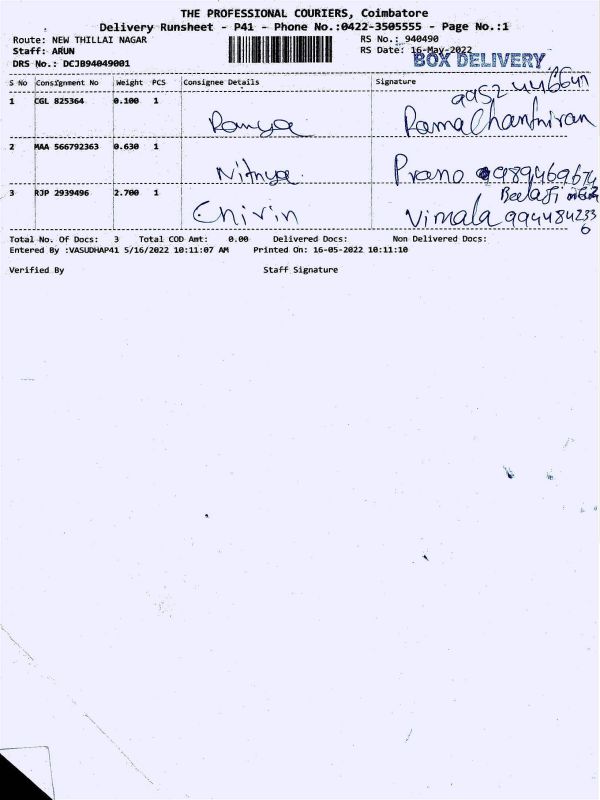 THE PROFESSIONAL COURIERS, Coimbatore
Delivery Runsheet - P41 - Phone No.:0422-3505555 - Page No.:1
Route: NEW THILLAI NAGAR RS No.: 940490
Staff: ARUN RS Date: 16-May-2022
BOX DELIVERY
DRS No.: DCJB94049001
S No Consignment No Weight PCS Consignee Details Signature
9952446647
1 CGL 825364 0.100 1
Ramya Ramachanthiran
2 MAA 566792363 0.630 1
Nithya Prano 989469674
3 RJP 2939496 2.700 1 Beelaji
Chirin Vimala 9944842336
Total No. Of Docs: 3 Total COD Amt: 0.00 Delivered Docs: Non Delivered Docs:
Entered By :VASUDHAP41 5/16/2022 10:11:07 AM Printed On: 16-05-2022 10:11:10
Verified By Staff Signature